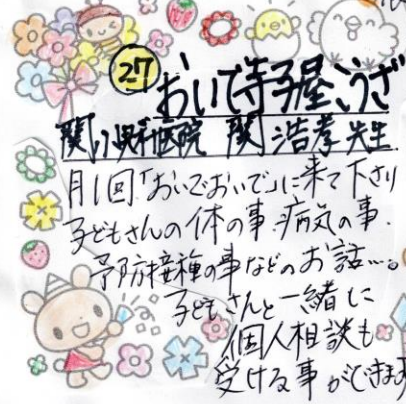 27 おいで寺子屋こうざ
関小児科医院 関 浩孝 先生
月1回「おいでおいで」に来て下さり
子どもさんの体の事、病気の事、
予防接種の事などのお話…。
子どもさんと一緒に
個人相談も
受ける事ができます